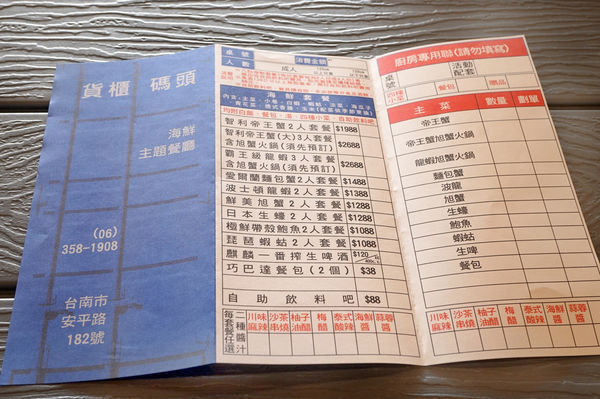 貨櫃 碼頭
海鮮
主題餐廳
(06)
358-1908
台南市
安平路
182號
桌號
消費金額
人數
成人
海鮮套餐
內含:主菜、小卷、白蝦、蝦蛄、淡菜、海瓜子
青花菜、港式香腸、玉米(配菜依季節更換)
智利帝王蟹2人套餐 $1988
智利帝王蟹(大)3人套餐
含旭蟹火鍋(須先預訂) $2688
霸王級龍蝦3人套餐
含旭蟹火鍋(須先預訂) $2688
愛爾蘭麵包蟹2人套餐 $1488
波士頓龍蝦2人套餐 $1388
鮮美旭蟹2人套餐 $1288
日本生蠔2人套餐 $1288
極鮮帶殼鮑魚2人套餐 $1088
琵琶蝦蛄2人套餐 $1088
麒麟一番搾生啤酒 $120
巧巴達餐包(2個) $38
自助飲料吧 $88
每套餐任選
二種醬汁
川味麻辣
沙茶串燒
柚子油醋
梅醋
泰式酸辣
海鮮醬
蒜蓉醬
廚房專用聯(請勿填寫)
桌號
活動配套
四種小菜
餐包
贈品
主菜 數量 劃單
帝王蟹
帝王蟹旭蟹火鍋
龍蝦旭蟹火鍋
麵包蟹
波龍
旭蟹
生蠔
鮑魚
蝦蛄
生啤
餐包
川味麻辣
沙茶串燒
柚子油醋
梅醋
泰式酸辣
海鮮醬
蒜蓉醬